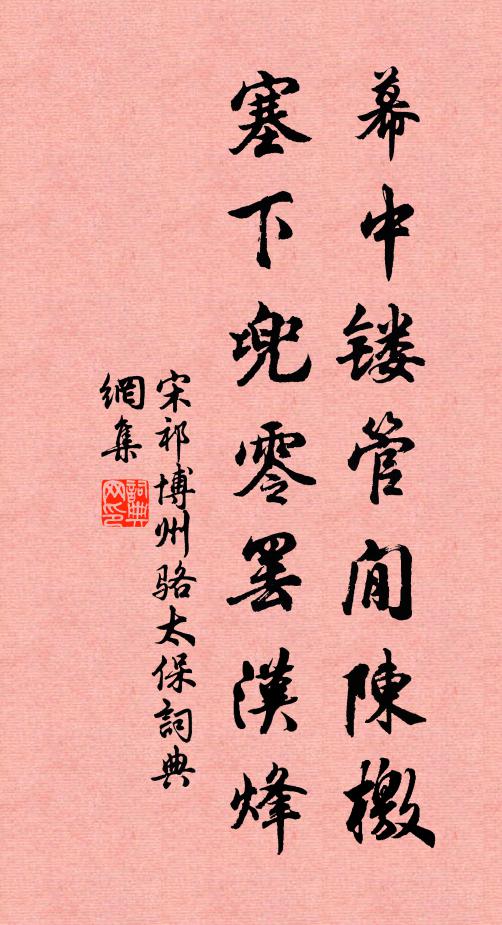 幕中镂管閒陳檄
塞下兜零罢漢烽
宋祁博州骆太保詞典
網集
詞典
网印